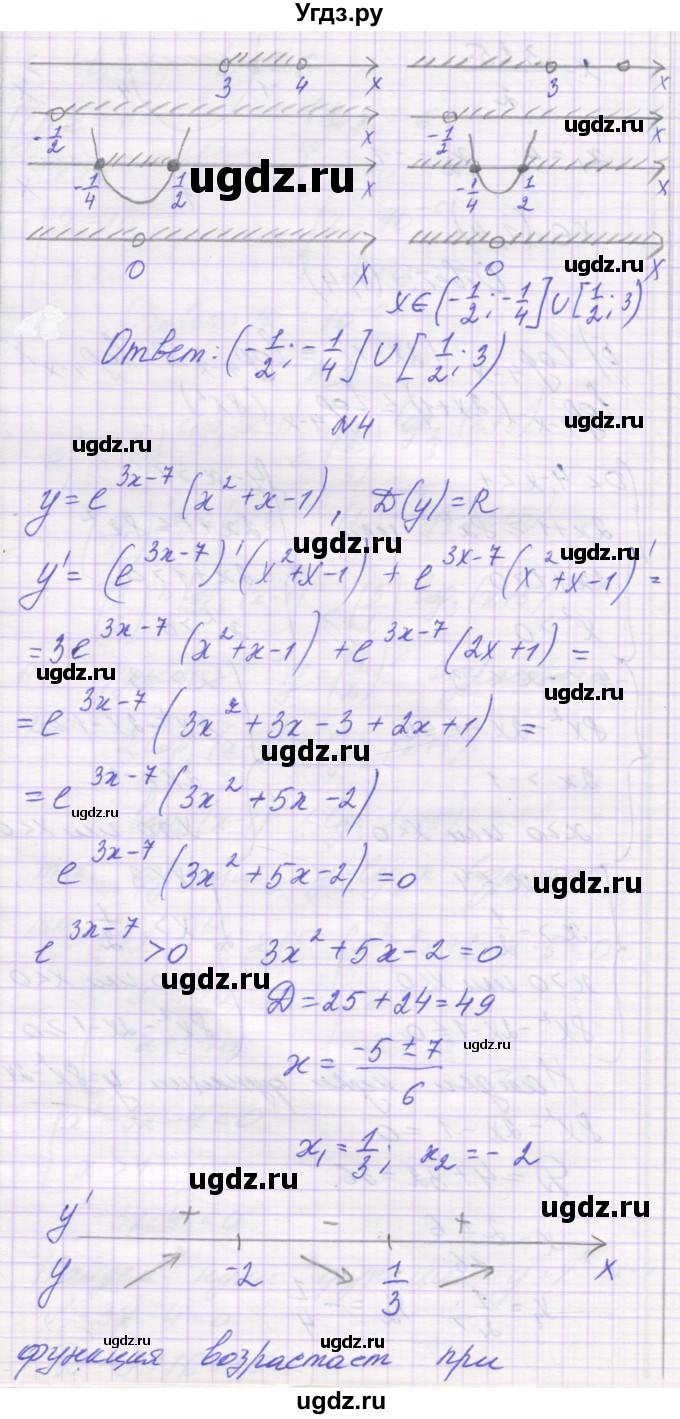 Угдз.ру
3 4 x 3 x
-1/2 x -1/2 x
ugdz.ru
-1/4 1/2 x -1/4 1/2 x
ugdz.ru
0 x 0 x
ugdz.ru
x∈(-1/2; -1/4]∪[1/2; 3)
Ответ: (-1/2; -1/4]∪[1/2; 3)
№4
ugdz.ru
ugdz.ru
y = e^{3x-7} (x²+x-1), D(y)=R
ugdz.ru
ugdz.ru
y' = (e^{3x-7})' (x²+x-1) + e^{3x-7} (x²+x-1)' =
= 3e^{3x-7} (x²+x-1) + e^{3x-7} (2x+1) =
ugdz.ru
ugdz.ru
= e^{3x-7} (3x²+3x-3+2x+1) =
ugdz.ru
= e^{3x-7} (3x²+5x-2)
ugdz.ru
e^{3x-7} (3x²+5x-2)=0
ugdz.ru
e^{3x-7} >0 3x²+5x-2=0
ugdz.ru
D=25+24=49
ugdz.ru
x = (-5±7)/6
x₁=1/3; x₂=-2
ugdz.ru
ugdz.ru
y' + - +
y -2 1/3 x
ugdz.ru
ugdz.ru
функция возрастает при
ugdz.ru